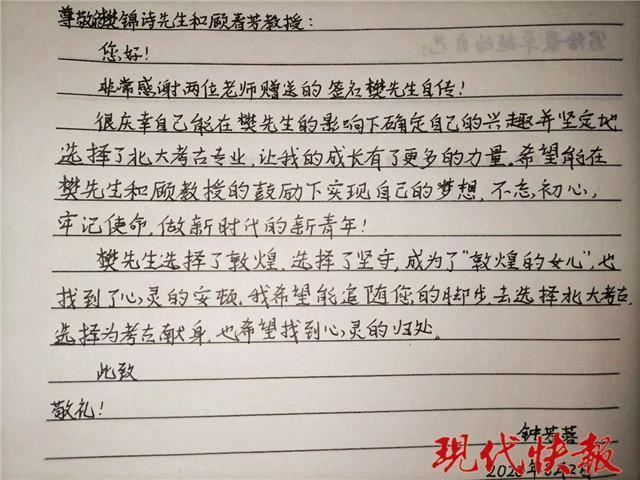 尊敬的樊锦诗先生和顾春芳教授：
您好！
非常感谢两位老师赠送的签名樊先生自传！
很庆幸自己能在樊先生的影响下确定自己的兴趣并坚定地
选择了北大考古专业，让我的成长有了更多的力量。希望能在
樊先生和顾教授的鼓励下实现自己的梦想，不忘初心，
牢记使命，做新时代的新青年！
樊先生选择了敦煌，选择了坚守，成为了“敦煌的女儿”，也
找到了心灵的安顿。我希望能追随您的脚步，去选择北大考古，
选择为考古献身，也希望找到心灵的归处。
此致
敬礼！
钟芳蓉
现代快報
2020年8月2日